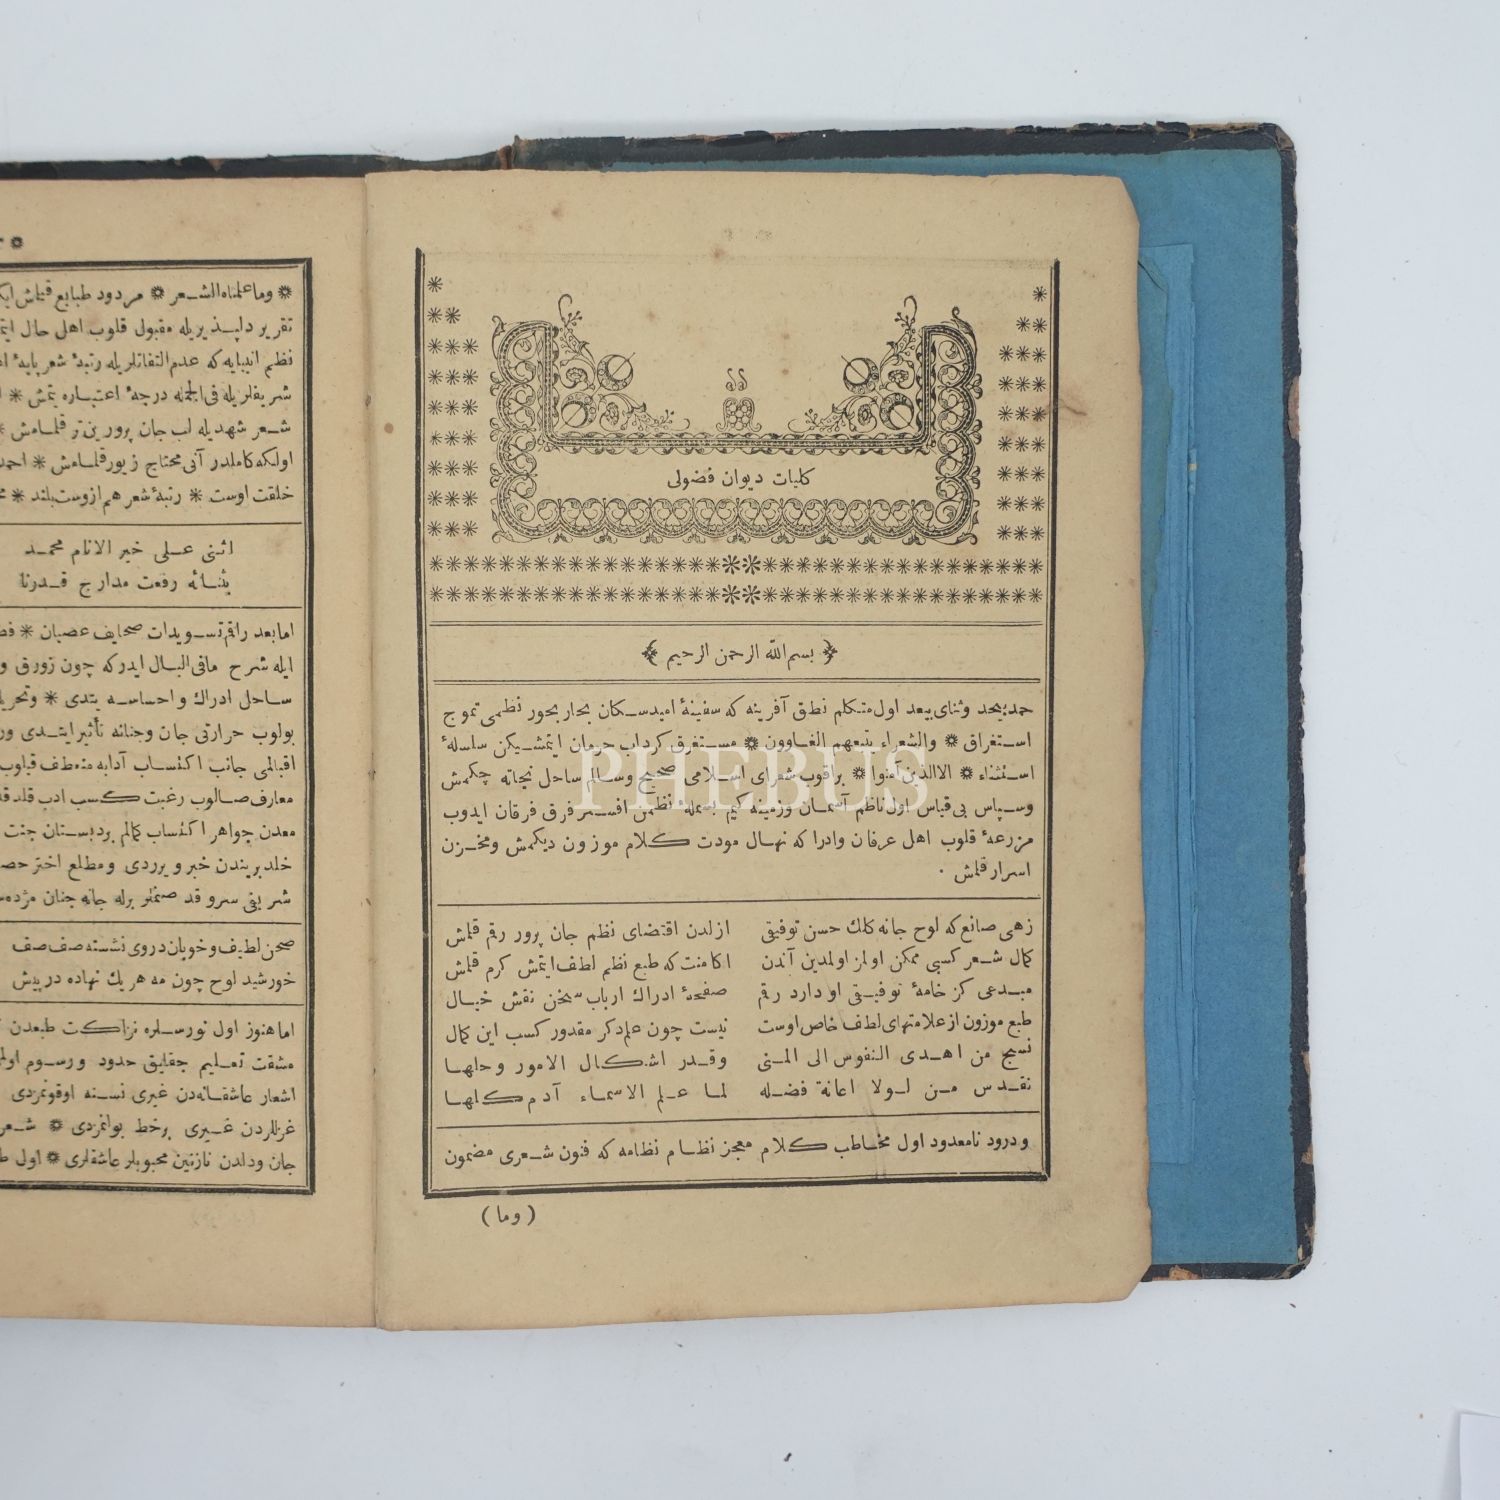 كليات ديوان فضولى
بسم الله الرحمن الرحيم
حمد بيحد وثناى بيعد اول متكلم نطق آفرينه كه سفينهٔ اميد سكان بحار بحور نظمى تموج
استغراق * والشعراء يتبعهم الغاوون * مستغرق كرداب حرمان ايتمشيكن سلسلهٔ
استثناء * الا الذين آمنوا * براقوب شعراى اسلامى صحيح وسالم ساحل نجاته چكمش
وسپاس بى قياس اول ناظم آسمان وزمينه كيم بسملهٔ نظمن افسر فرق فرقان ايدوب
مزرعهٔ قلوب اهل عرفان وادراكه نهال مودت كلام موزون ديكمش ومخزن
اسرار قلمش ٠
زهى صانع كه لوح جانه كلك حسن توفيقى ازلدن اقتضاى نظم جان پرور رقم قلمش
كمال شعر كسبى ممكن اولمز اولمدين آندن اكا منت كه طبع نظم لطف ايتمش كرم قلمش
مبدعى كز خامهٔ توفيقى او دارد رقم صفحهٔ ادراك ارباب سخن نقش خيال
طبع موزون از علامتهاى لطف خاص اوست نيست چون علم دكر مقدور كسب اين كمال
نسبح من اهدى النفوس الى المنى وقدر اشكال الامور وحلها
نقدس من لولا اعانة فضله لما علم الاسماء آدم كلها
ودرود نامعدود اول مخاطب كلام معجز نظام نظامه كه فنون شعرى مضمون
(وما)
* وما علمناه الشعر * مردود طبايع قلمش
تقرير دلپذيريله مقبول قلوب اهل حال
نظم انبيايه كه عدم التفاتلريله رتبهٔ شعر پايهٔ
شريفلريله فى الجمله درجهٔ اعتباره يتمش *
شعر شهديله لب جان پرورين تر قلمامش *
اولكه كاملدر آنى محتاج زيور قلمامش * احمد
خلقت اوست * رتبهٔ شعر هم ازوست بلند *
اثنى على خير الانام محمد
بثنائه رفعت مدارج قدرنا
اما بعد راقم تسويدات صحايف عصيان *
ايله شرح مافى البال ايدركه چون زورق
ساحل ادراك واحساسه يتدى * وتحرير
بولوب حرارتى جان وجنانه تأثير ايتدى
اقبالمى جانب اكتساب آدابه منعطف قيلوب
معارف صالوب رغبت كسب ادب
معدن جواهر اكتساب كمالم بر دبستان جنت
خلد بريندن خبر ويرردى ومطلع اختر
شريفى سرو قد صنملر برله جانه جنان
صحن لطيف وخوبان دروى نشسته صف صف
خورشيد لوح چون مه هر يك نهاده در پيش
اما هنوز اول نورسلره نزاكت طبعدن
مشقت تعليم حقايق حدود ورسوم
اشعار عاشقانه دن غيرى نسنه اوقونمزدى
غزللردن غيرى برخط بولنمزدى *
جان ودلدن نازنين محبوبلر عاشقلرى * اول
PHEBUS